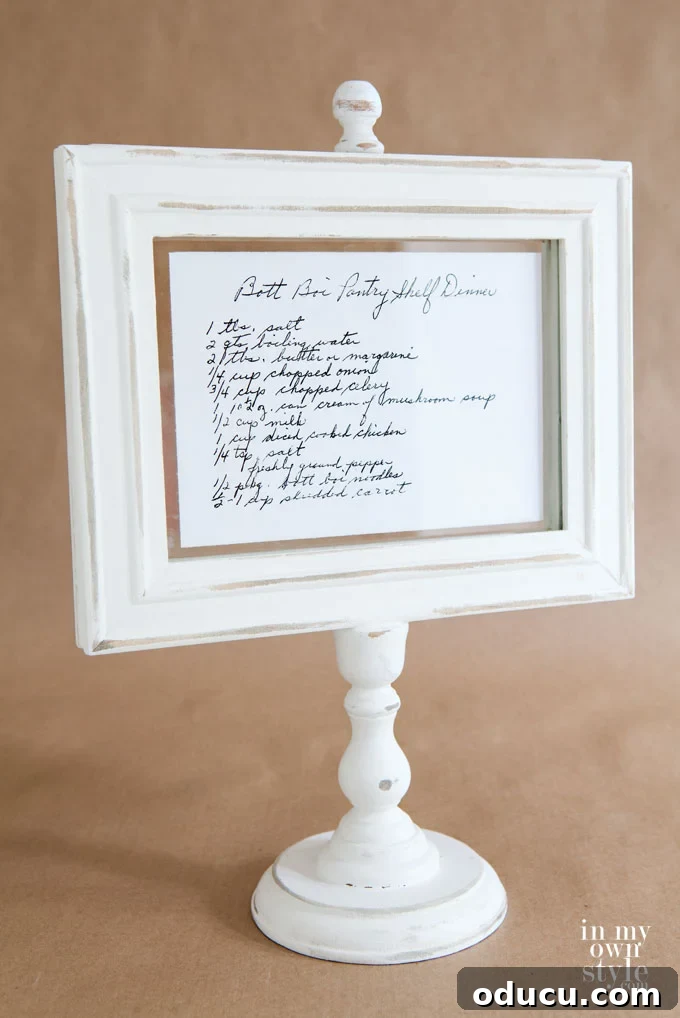 Bott Boi Pantry Shelf Dinner
1 tbs. salt
2 qts boiling water
2 tbs. butter or margarine
1/4 cup chopped onion
3/4 cup chopped celery
1 10 1/2 oz. can cream of mushroom soup
1/2 cup milk
1 cup diced cooked chicken
1/4 tsp salt
freshly ground pepper
1/2 pkg. bott boi noodles
1/2 - 1 cup shredded carrot
in my
own
style
.com
oducu.com